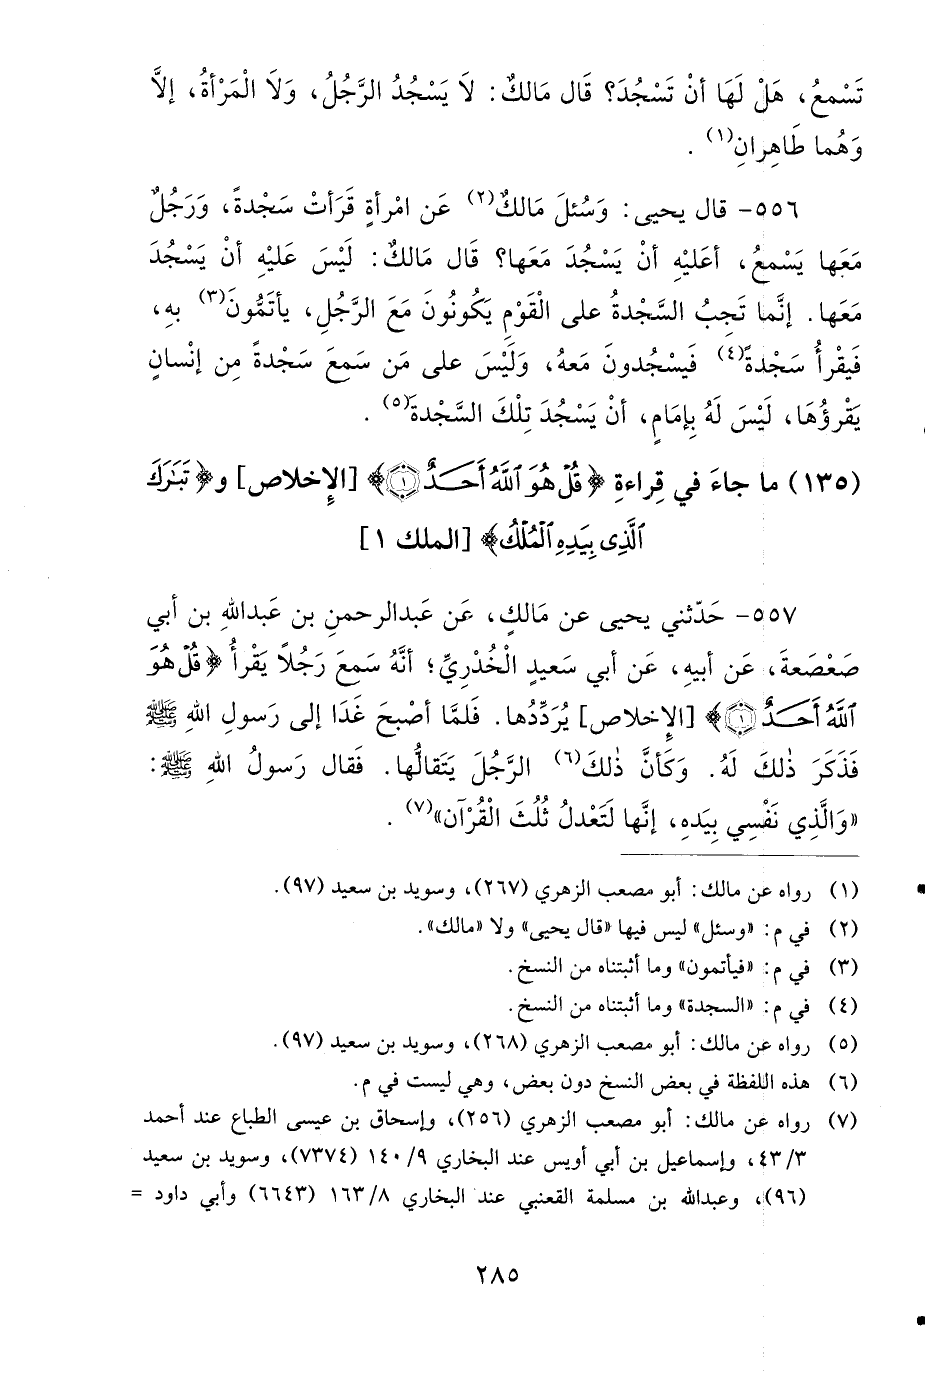 تَسْمعُ، هَلْ لَهَا أنْ تَسْجُدَ؟ قَال مَالكٌ: لَا يَسْجُدُ الرَّجُلُ، وَلَا الْمَرْأةُ، إلاَّ
وَهُما طَاهِرانِ(١) .
٥٥٦- قال يحيى: وَسُئلَ مَالكٌ(٢) عَن امْرأةٍ قَرَأتْ سَجْدةً، وَرَجُلٌ
مَعَها يَسْمعُ، أعَليْهِ أنْ يَسْجُدَ مَعَها؟ قَال مَالكٌ: لَيْسَ عَليْهِ أنْ يَسْجُدَ
مَعَها. إنَّما تَجِبُ السَّجْدةُ على الْقَوْمِ يَكُونُونَ مَعَ الرَّجُلِ، يأتَمُّونَ(٣) بهِ،
فَيقْرأُ سَجْدةً(٤) فَيسْجُدونَ مَعهُ، وَلَيْسَ على مَن سَمعَ سَجْدةً مِن إنْسانٍ
يَقْرؤُهَا، لَيْسَ لَهُ بإمَامٍ، أنْ يَسْجُدَ تِلْكَ السَّجْدةَ(٥) .
(١٣٥) ما جاءَ في قِراءةِ ﴿قُلْ هُوَ ٱللَّهُ أَحَدٌ ۝١﴾ [الإخلاص] و﴿تَبَٰرَكَ
ٱلَّذِى بِيَدِهِ ٱلْمُلْكُ﴾ [الملك ١]
٥٥٧- حَدّثني يحيى عن مَالكٍ، عَن عَبدالرحمنِ بن عَبداللهِ بن أبي
صَعْصَعةَ، عَن أبيهِ، عَن أبي سَعيدٍ الْخُدْريِّ؛ أنَّهُ سَمعَ رَجُلاً يَقْرأُ ﴿قُلْ هُوَ
ٱللَّهُ أَحَدٌ ۝١﴾ [الإخلاص] يُرَدِّدُها. فَلمَّا أصْبحَ غَدَا إلى رَسولِ اللهِ ﷺ
فَذَكَرَ ذٰلكَ لَهُ. وَكأنَّ ذٰلكَ(٦) الرَّجُلَ يَتَقالُّها. فَقال رَسولُ اللهِ ﷺ:
«وَالَّذِي نَفْسِي بِيَدهِ، إنَّها لَتَعْدلُ ثُلُثَ الْقُرْآن»(٧) .
(١) رواه عن مالك: أبو مصعب الزهري (٢٦٧)، وسويد بن سعيد (٩٧).
(٢) في م: «وسئل» ليس فيها «قال يحيى» ولا «مالك».
(٣) في م: «فيأتمون» وما أثبتناه من النسخ.
(٤) في م: «السجدة» وما أثبتناه من النسخ.
(٥) رواه عن مالك: أبو مصعب الزهري (٢٦٨)، وسويد بن سعيد (٩٧).
(٦) هذه اللفظة في بعض النسخ دون بعض، وهي ليست في م.
(٧) رواه عن مالك: أبو مصعب الزهري (٢٥٦)، وإسحاق بن عيسى الطباع عند أحمد
٤٣/٣، وإسماعيل بن أبي أويس عند البخاري ١٤٠/٩ (٧٣٧٤)، وسويد بن سعيد
(٩٦)، وعبدالله بن مسلمة القعنبي عند البخاري ١٦٣/٨ (٦٦٤٣) وأبي داود =
٢٨٥